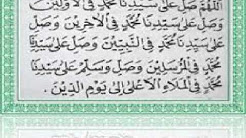 اَللّٰهُمَّ صَلِّ عَلَى سَيِّدِنَا مُحَمَّدٍ فِى الْاَوَّلِيْنَ
وَصَلِّ عَلَى سَيِّدِنَا مُحَمَّدٍ فِى الْاٰخِرِيْنَ وَصَلِّ
عَلَى سَيِّدِنَا مُحَمَّدٍ فِى النَّبِيِّيْنَ وَصَلِّ عَلَى سَيِّدِنَا
مُحَمَّدٍ فِى الْمُرْسَلِيْنَ وَصَلِّ وَسَلِّمْ عَلَى سَيِّدِنَا
مُحَمَّدٍ فِى الْمَلَاءِ الْاَعْلَى اِلَى يَوْمِ الدِّيْنِ